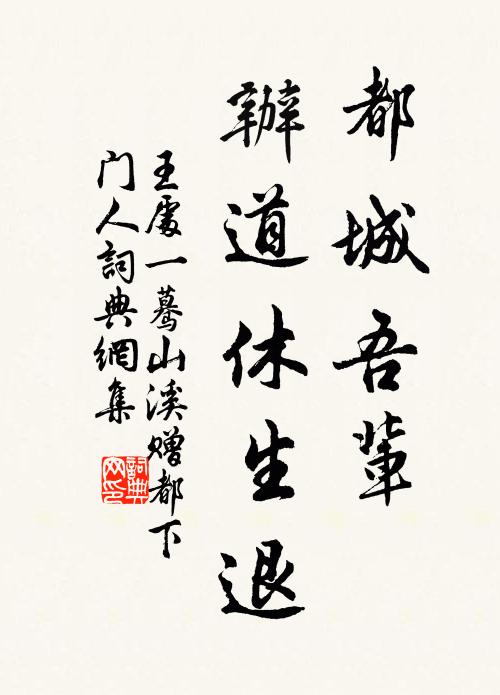 都城吾輩
辦道休生退
王處一驀山溪贈都下
门人詞典網集
詞典網印